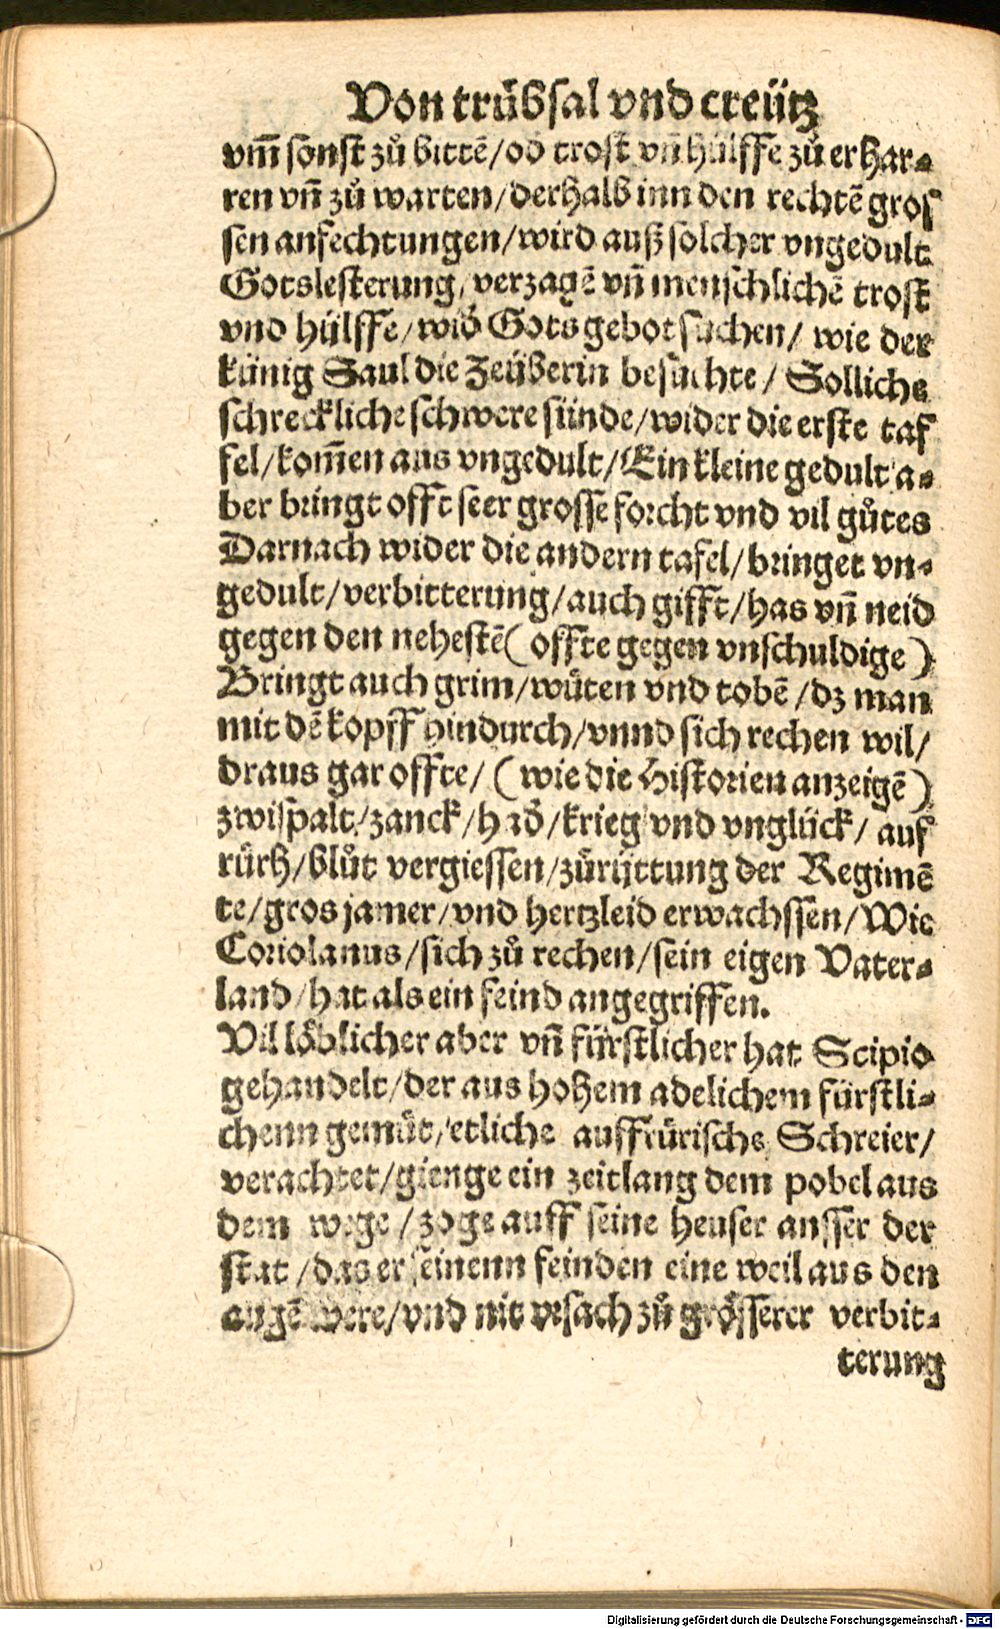 Von trübsal vnd creütz
vm̃ sonst zů bittē / od̾ trost vñ hülffe zů erhar-
ren vñ zů warten / derhalb inn den rechtē gros
sen anfechtungen / wird auß solcher vngedult
Gotslesterung / verzagē vñ menschlichē trost
vnd hülffe / wid̾ Gots gebot suchen / wie der
künig Saul die Zeüberin besůchte / Solliche
schreckliche schwere sünde / wider die erste taf
fel / kom̃en aus vngedult / Ein kleine gedult a-
ber bringt offt seer grosse forcht vnd vil gůtes
Darnach wider die andern tafel / bringet vn-
gedult / verbitterung / auch gifft / has vñ neid
gegen den nehestē ( offte gegen vnschuldige )
Bringt auch grim / wüten vnd tobē / dz man
mit dē kopff hindurch / vnnd sich rechen wil /
draus gar offte / ( wie die Historien anzeigē )
zwispalt / zanck / had̾ / krieg vnd vnglück / auf
rürh / blůt vergiessen / zůrüttung der Regimē
te / gros jamer / vnd hertzleid erwachssen / Wie
Coriolanus / sich zů rechen / sein eigen Vater-
land / hat als ein feind angegriffen.
Vil löblicher aber vñ fürstlicher hat Scipio
gehandelt / der aus hohem adelichem fürstli-
chenn gemüt / etliche auffrürische Schreier /
verachtet / gienge ein zeitlang dem pobel aus
dem wege / zoge auff seine heuser ausser der
stat / das er seinenn feinden eine weil aus den
augē were / vnd nit vrsach zů grösserer verbit-
terung
Digitalisierung gefördert durch die Deutsche Forschungsgemeinschaft - DFG